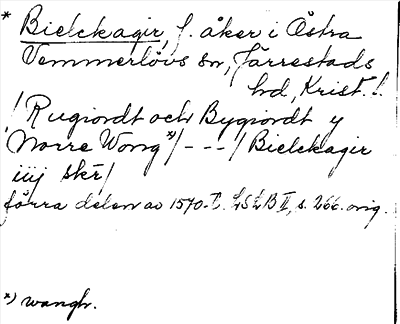 * Bielckagir, f. åker i Östra
Vemmerlövs sn, Järrestads
hd, Krist. l.
/ Rugiordt och Bygiordt y
"Norre Wong" *) / - - - / Bielckagir
iiij skr /
förra delen av 1570-t. LSLB II, s. 266. orig.
*) wangh.